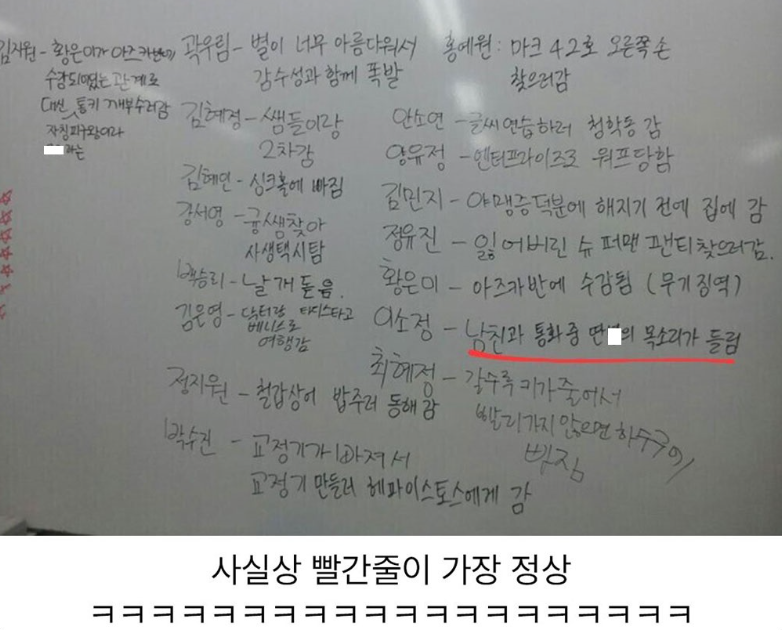 김지원 - 황은미가 아즈카반에
수감되어있는 관계로
대신 통키 깨부수러감
자칭피구왕이라
라는
곽우림 - 별이 너무 아름다워서
감수성과 함께 폭발
김혜정 - 쌤들이랑
2차감
김혜인 - 싱크홀에 빠짐
강서영 - 궁쌤찾아
사생택시탐
백승리 - 날개 돋음.
김은영 - 닥터랑 타디스타고
베니스로
여행감
정지원 - 철갑상어 밥주러 동해감
박수진 - 교정기가 빠져서
교정기 만들러 헤파이스토스에게 감
홍예원 : 마크 42호 오른쪽 손
찾으러감
안소연 - 글씨연습하러 청학동 감
양유정 - 엔터프라이즈로 워프당함
김민지 - 야맹증덕분에 해지기 전에 집에 감
정유진 - 잃어버린 슈퍼맨 팬티찾으러감.
황은미 - 아즈카반에 수감됨 (무기징역)
이소정 - 남친과 통화중 딴 의 목소리가 들림
최혜정 - 갈수록 키가 줄어서
빨리가지 않으면 하수구에
빠짐
사실상 빨간줄이 가장 정상
ㅋㅋㅋㅋㅋㅋㅋㅋㅋㅋㅋㅋㅋㅋㅋㅋㅋㅋㅋㅋ